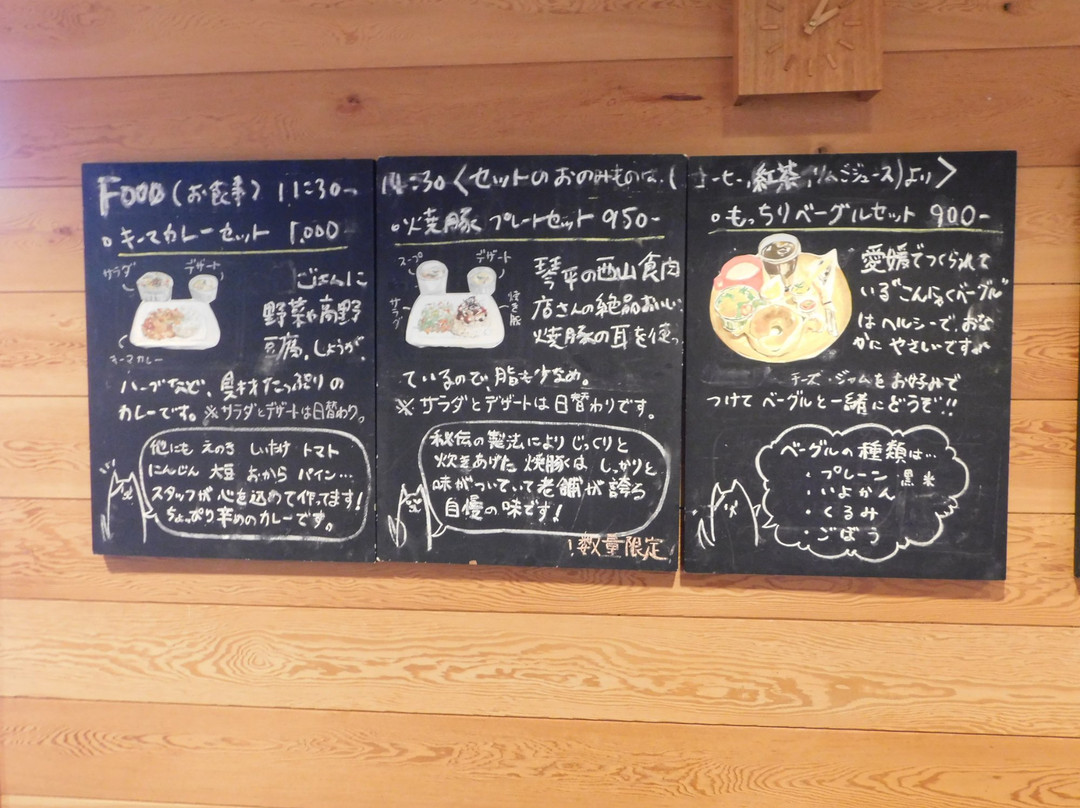 FOOD (お食事) 11:30~14:30 <セットのおのみものは、(コーヒー, 紅茶, りんごジュース)より>
。キーマカレーセット 1,000-
サラダ
デザート
キーマカレー
ごはんに
野菜や高野
豆腐、しょうが、
ハーブなど、具材たっぷりの
カレーです。※サラダとデザートは日替わり。
他にも えのき しいたけ トマト
にんじん 大豆 おから パイン…
スタッフが心を込めて作ってます!
ちょっぴり辛めのカレーです。
。焼豚プレートセット 950-
スープ
デザート
サラダ
焼き豚
琴平の西山食肉
店さんの絶品おいしい
焼豚の耳を使っ
ているので、脂も少なめ。
※サラダとデザートは日替わりです。
秘伝の製法によりじっくりと
炊きあげた焼豚くは しっかりと
味がついていて老舗が誇る
自慢の味です!
!数量限定
。もっちりベーグルセット 900-
愛媛でつくられて
いる"こんにゃくベーグル"
はヘルシーで、おな
かに やさしいですよ
チーズ・ジャムをお好みで
つけて ベーグルと一緒にどうぞ!!
ベーグルの種類は…
・プレーン 黒米
・いよかん
・くるみ
・ごぼう